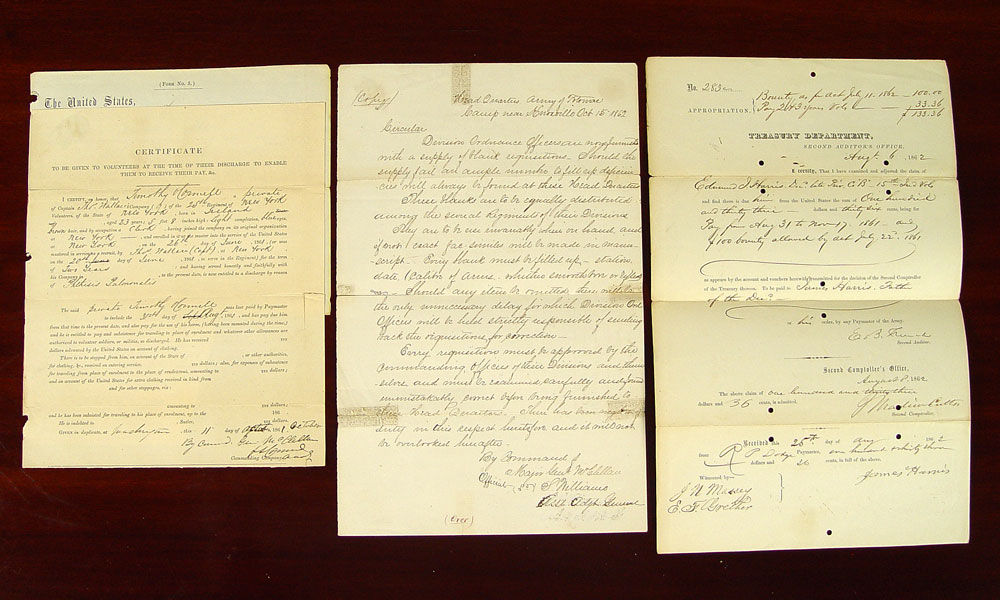 (FORM NO. 1.)
The United States,
CERTIFICATE
TO BE GIVEN TO VOLUNTEERS AT THE TIME OF THEIR DISCHARGE TO ENABLE
THEM TO RECEIVE THEIR PAY, &c.
I CERTIFY, on honor, that Timothy a private
of Captain Company of the Regiment of New York
Volunteers, of the State of New York, born in Ireland
aged 23 years 5 feet 8 inches high light complexion,
and by occupation a Clerk having joined the company on its original organization
at New York and enrolled in it at muster into the service of the United States
at New York on the 26th day of June 1861
mustered in at New York
on the day of June, 1861, to serve in the Regiment for the term
of Two Years and having served honestly and faithfully with
his Company to the present date, is now entitled to a discharge by reason
of Pulmonalis
The said private Timothy was last paid by Paymaster
to include the day of 1861, and has pay due him
from that time to the present date, and also pay for the use of his horse, (having been mounted during the time,)
and he is entitled to pay and subsistence for traveling to place of enrolment and whatever other allowances are
authorized to volunteer soldiers, or militia, so discharged. He has received
dollars advanced by the United States on account of clothing.
There is to be stopped from him, on account of the State of or other authorities,
for clothing, &c., received on entering service, dollars; also, for expenses of subsistence
for traveling from place of enrolment to the place of rendezvous, amounting to dollars;
and on account of the United States for extra clothing received in kind from
and for other stoppages, viz:
amounting to dollars
and he has been subsisted for traveling to his place of enrolment, up to the 186
He is indebted to Sutler, dollars.
GIVEN in duplicate, at this 11 day of October 1861
By Comd. Gen McClellan
Commanding Company.
(Copy)
Head Quarters Army of Potomac
Camp near Knoxville Oct 15 1862
Circular
Division Ordnance Officers are now furnished
with a supply of blank requisitions. Should the
supply fail an ample number to fill up deficien
cies will always be found at these Head Quarters
These blanks are to be equally distributed
among the several Regiments of these Divisions
They are to be used invariably when on hand, and
if not exact fac similes will be made in manu-
script. Every blank must be filled up - station,
date, Caliber of arms, whether smooth bore or rifled
&c. Should any item be omitted there will be
only unnecessary delay for which Division Ord
Officers will be held strictly responsible of sending
back the requisitions for correction.
Every requisition must be approved by the
Commanding Officers of these Divisions and them-
selves and must be examined carefully and found
unmistakably correct before being furnished to
these Head Quarters. There has been neglect of
duty in this respect heretofore and it will not
be overlooked hereafter.
By Command of
Major Genl McClellan
Official S. Williams
Asst Adjt General
(Over)
No. 283
Bounty as pr act July 11. 1862 — 100.00
APPROPRIATION. Pay 2 & 3 years Vols — 33.36
$ 133.36
TREASURY DEPARTMENT,
SECOND AUDITOR'S OFFICE,
Aug. 6, 1862
I CERTIFY, That I have examined and adjusted the claim of
Edwin J Harris Dec' late Pvt Co B 15th Vols
and that there is due him from the United States the sum of One hundred
and thirty three dollars and thirty six cents, being for
Pay from Aug 31 to Nov 17. 1861 and
$100 bounty allowed by act July 22. 1861
as appears by the account and vouchers herewith transmitted for the decision of the Second Comptroller
of the Treasury thereon. To be paid to James Harris. Father
of the Dec'd
or his order, by any Paymaster of the Army.
E B. French
Second Auditor.
Second Comptroller's Office,
August 8, 1862
The above claim of one hundred and thirty three
dollars and 36 cents, is admitted.
J Madison Cutts
Second Comptroller.
Received this 25th day of Aug 1862
from R P Dodge Paymaster, one hundred & thirty three
dollars and 36 cents, in full of the above.
Witnessed by— James Harris
J N Massey
E. F. Brether